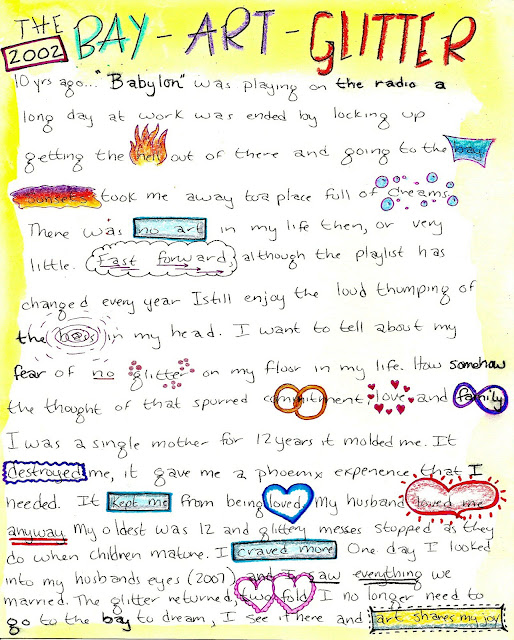 THE
2002 BAY-ART-GLITTER
10 yrs ago... "Babylon" was playing on the radio a
long day at work was ended by locking up
getting the hell out of there and going to the bay
sunsets took me away to a place full of dreams
There was no art in my life then, or very
little. Fast forward, although the playlist has
changed every year I still enjoy the loud thumping of
the bass in my head. I want to tell about my
fear of no glitter on my floor in my life. How somehow
the thought of that spurred commitment, love and family
I was a single mother for 12 years it molded me. It
destroyed me, it gave me a phoenix experience that I
needed. It kept me from being loved. My husband loved me
anyway My oldest was 12 and glittery messes stopped as they
do when children mature. I craved more One day I looked
into my husbands eyes (2007) and I saw everything we
married. The glitter returned, two fold I no longer need to
go to the bay to dream, I see it here and art shares my joy!